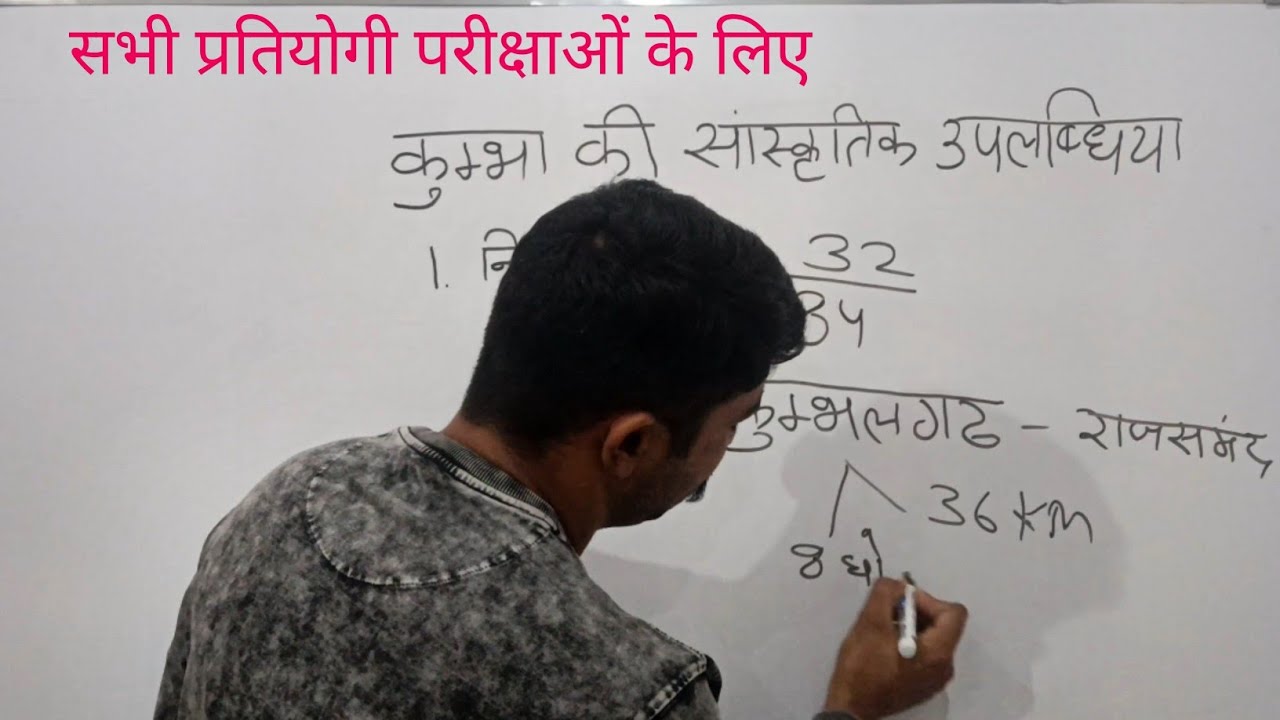 सभी प्रतियोगी परीक्षाओं के लिए
कुम्भा की सांस्कृतिक उपलब्धिया
1. 32
84
कुम्भलगढ - राजसमंद
36 km
8 घो